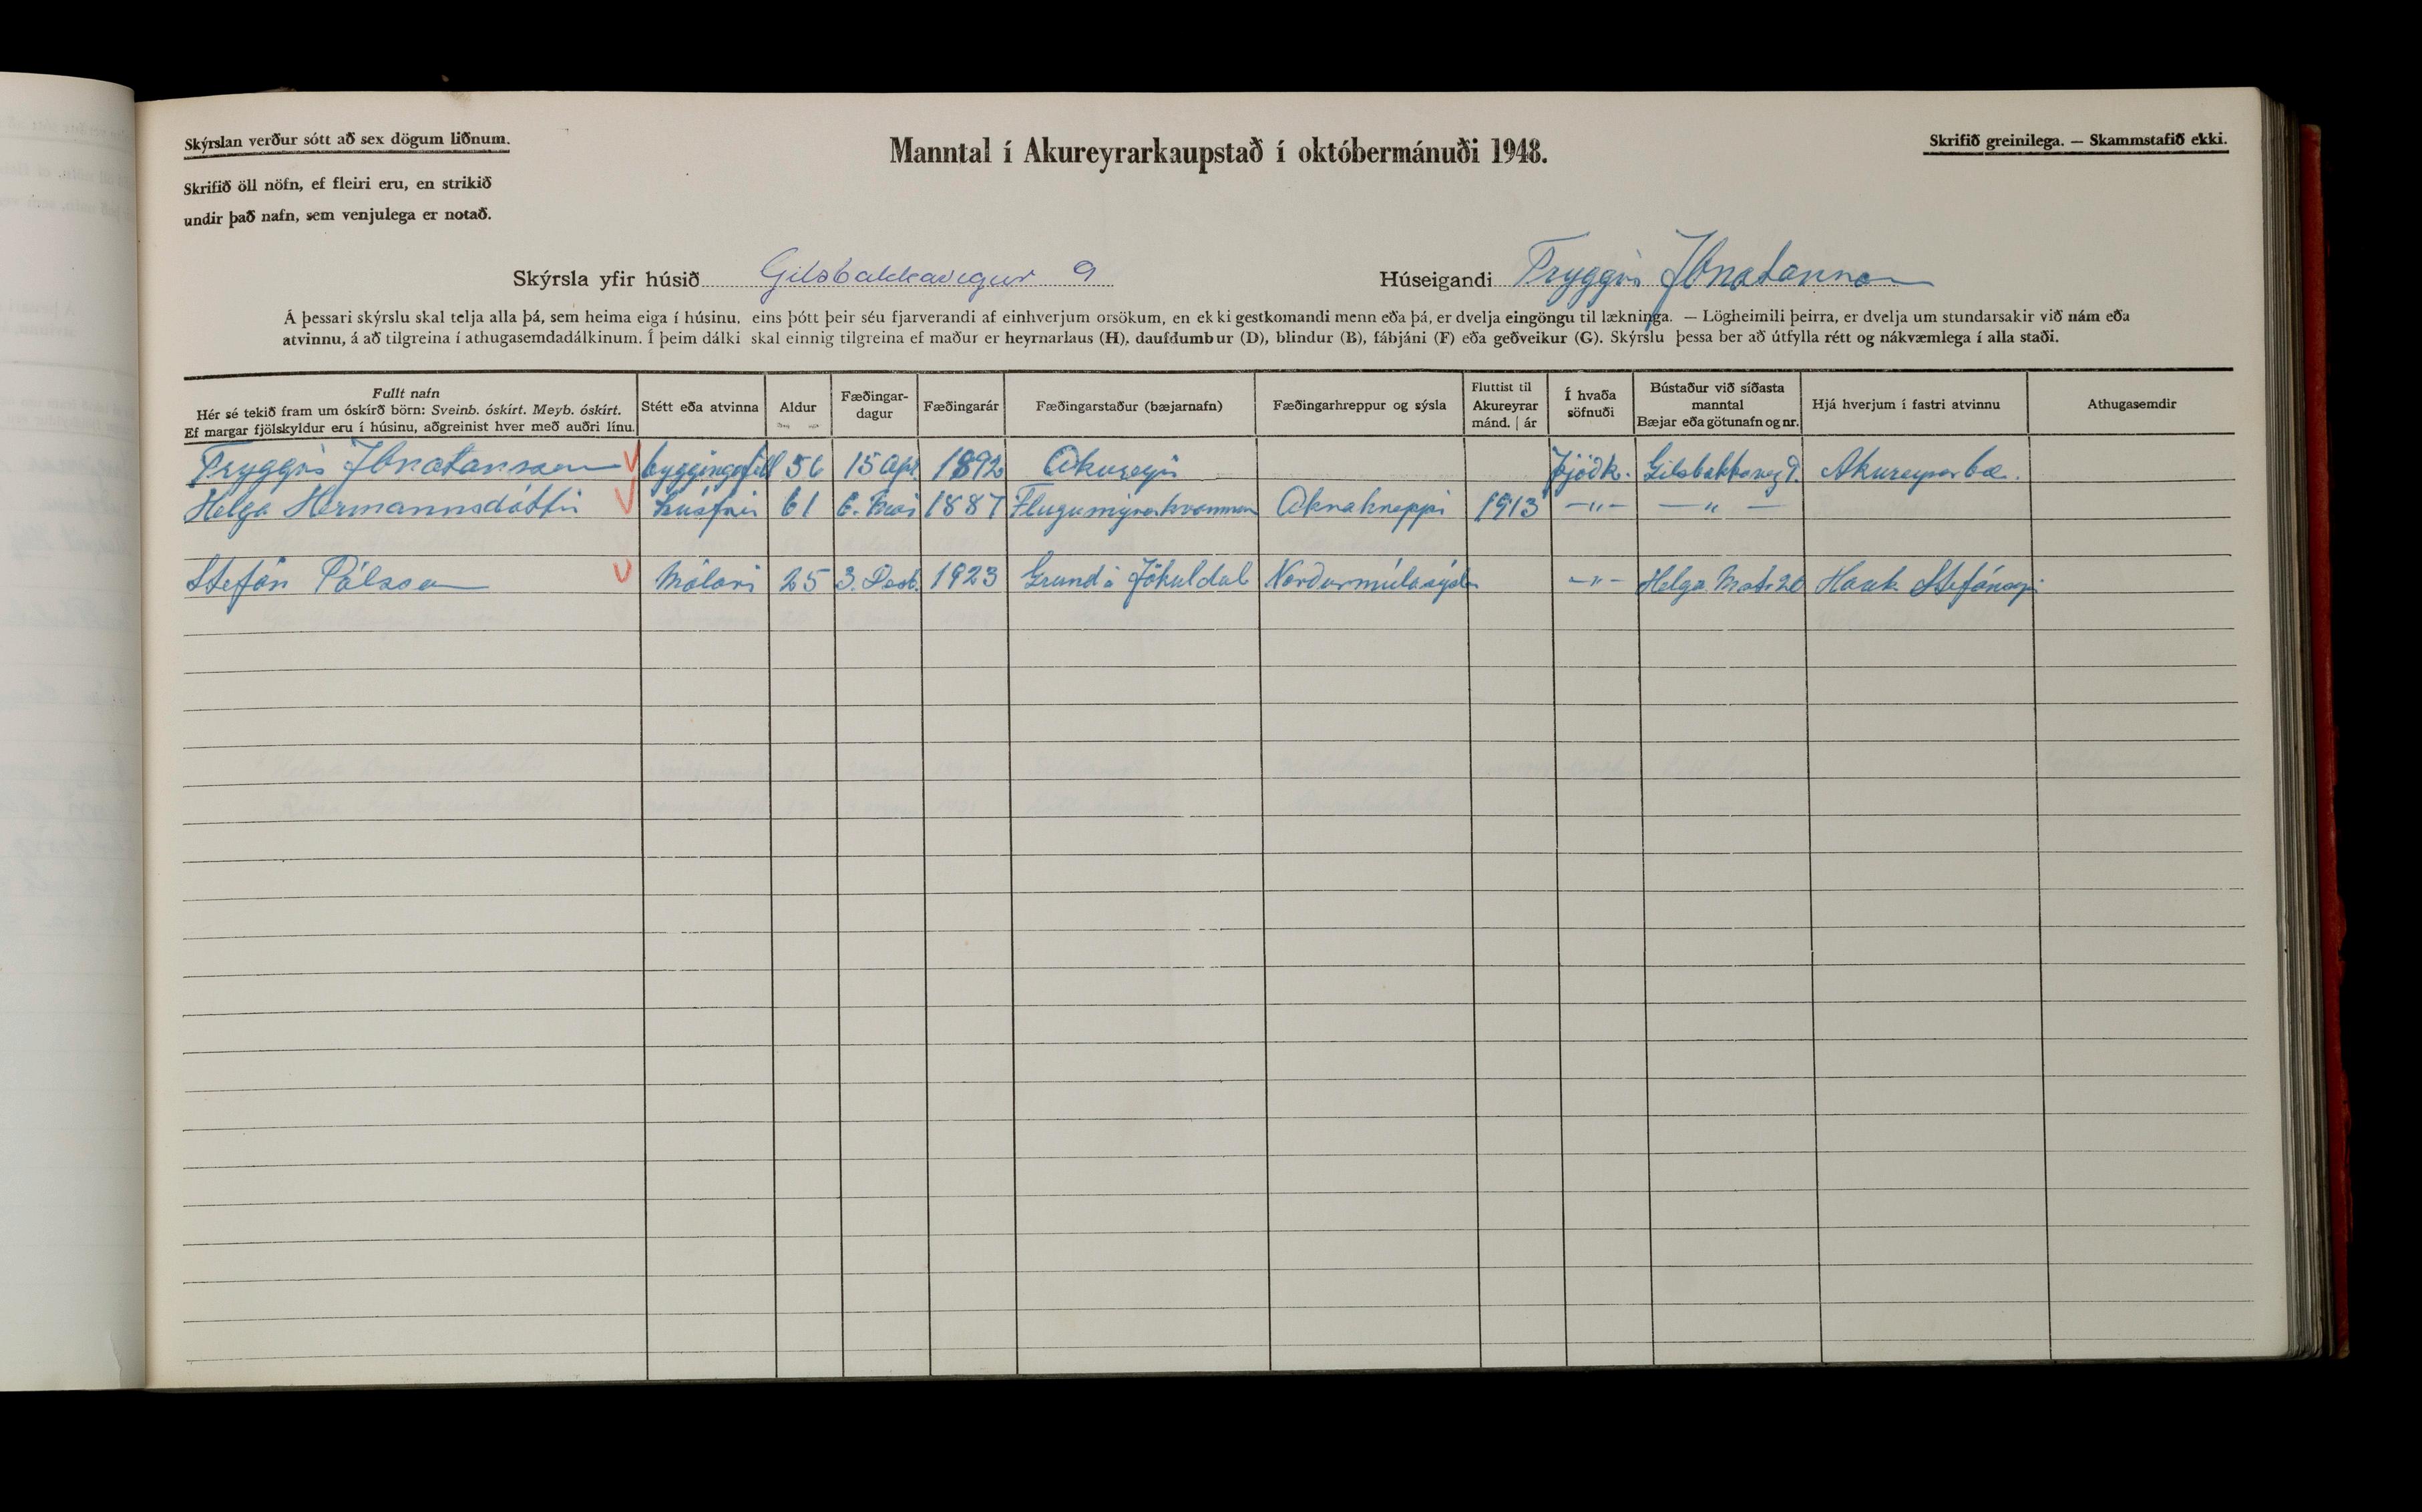 Skýrslan verður sótt að sex dögum liðnum.
Manntal í Akureyrarkaupstað í októbermánuði 1948.
Skrifið greinilega. — Skammstafið ekki.
Skrifið öll nöfn, ef fleiri eru, en strikið
undir það nafn, sem venjulega er notað.
Skýrsla yfir húsið Gilsbakkavegur 9 Húseigandi Tryggvi Jónatansson
Á þessari skýrslu skal telja alla þá, sem heima eiga í húsinu, eins þótt þeir séu fjarverandi af einhverjum orsökum, en ekki gestkomandi menn eða þá, er dvelja eingöngu til lækninga. — Lögheimili þeirra, er dvelja um stundarsakir við nám eða
atvinnu, á að tilgreina í athugasemdadálkinum. Í þeim dálki skal einnig tilgreina ef maður er heyrnarlaus (H), daufdumbur (D), blindur (B), fábjáni (F) eða geðveikur (G). Skýrslu þessa ber að útfylla rétt og nákvæmlega í alla staði.
Fullt nafn
Hér sé tekið fram um óskírð börn: Sveinb. óskírt. Meyb. óskírt.
Ef margar fjölskyldur eru í húsinu, aðgreinist hver með auðri línu.
Stétt eða atvinna
Aldur
Fæðingar-
dagur
Fæðingarár
Fæðingarstaður (bæjarnafn)
Fæðingarhreppur og sýsla
Fluttist til
Akureyrar
mánd. | ár
Í hvaða
söfnuði
Bústaður við síðasta
manntal
Bæjar eða götunafn og nr.
Hjá hverjum í fastri atvinnu
Athugasemdir
Tryggvi Jónatansson V byggingafull 56 15 apr. 1892 Akureyri Þjóðk. Gilsbakkaveg 9. Akureyrarbæ.
Helga Hermannsdóttir V húsfrú 61 6. Maí 1887 Flugumýrarhvammur Akrahreppi 1913 —"— —"—
Stefán Pálsson V Málari 25 3. 1923 Grund á Jökuldal Norðurmúlasýslu —"— Helga Mstr 20 Hauk Stefánssyni